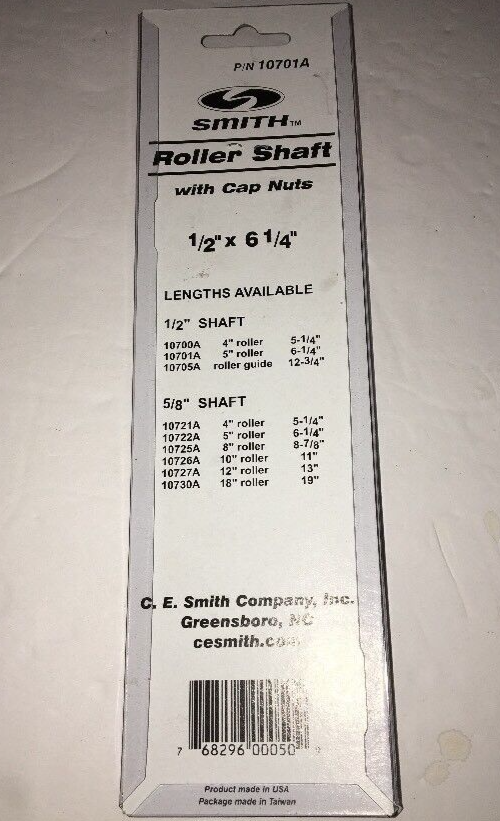 P/N 10701A
SMITH™
Roller Shaft
with Cap Nuts
1/2" x 6 1/4"
LENGTHS AVAILABLE
1/2" SHAFT
10700A 4" roller 5-1/4"
10701A 5" roller 6-1/4"
10705A roller guide 12-3/4"
5/8" SHAFT
10721A 4" roller 5-1/4"
10722A 5" roller 6-1/4"
10725A 8" roller 8-7/8"
10726A 10" roller 11"
10727A 12" roller 13"
10730A 18" roller 19"
C. E. Smith Company, Inc.
Greensboro, NC
cesmith.com
7 68296 00050
Product made in USA
Package made in Taiwan